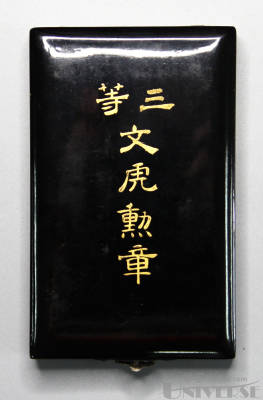 三等
文虎勲章
UNIVERSE